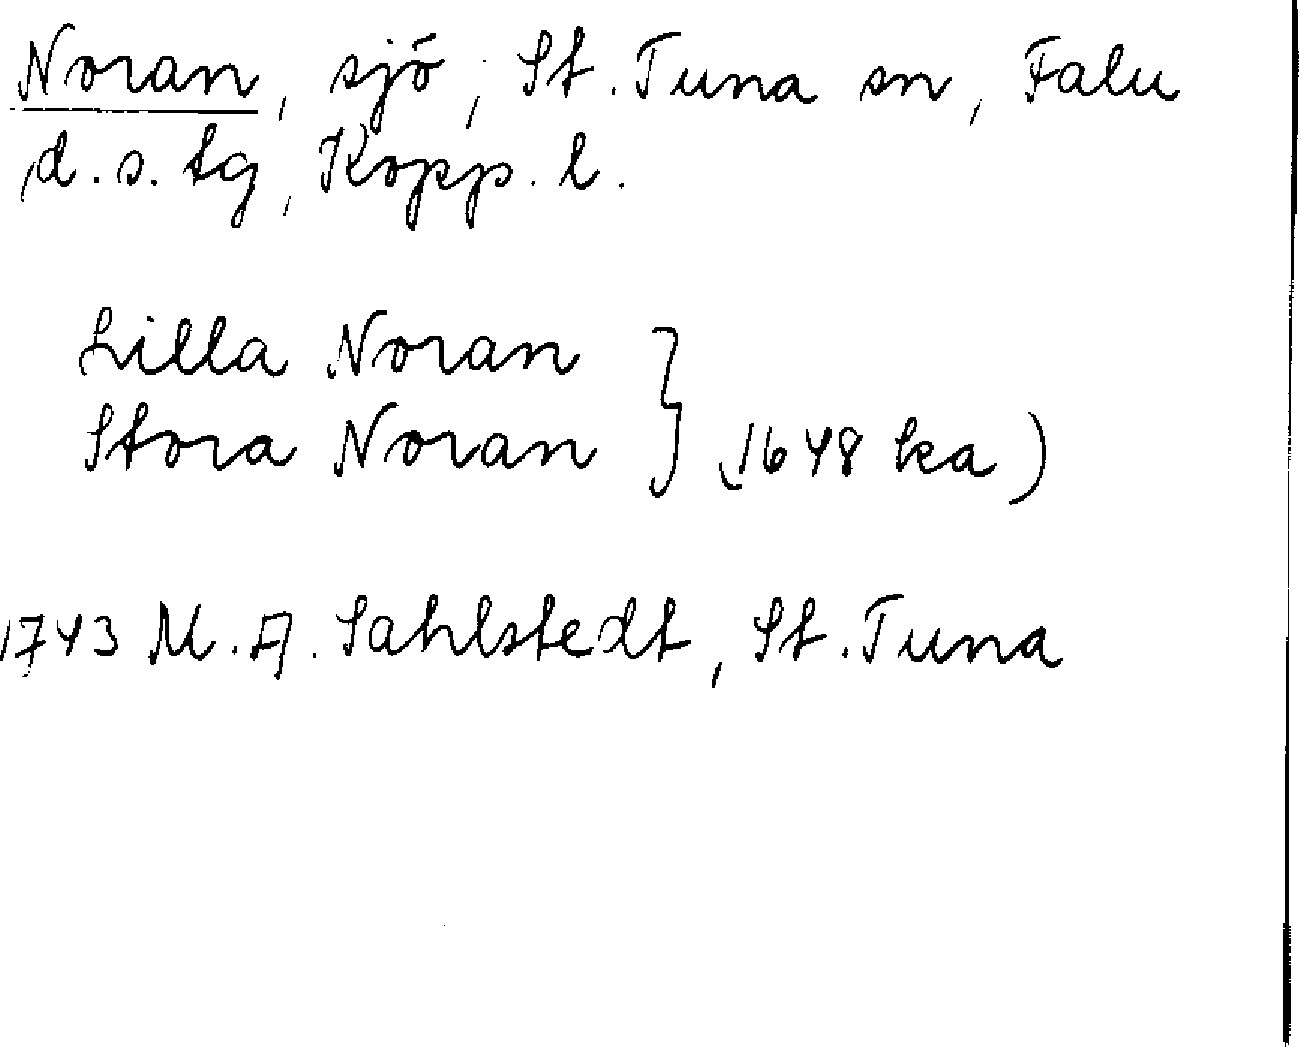 Noran, sjö, St. Tuna sn, Falu
d.s. tg, Kopp. l.
Lilla Noran
Stora Noran } (1648 ka)
1743 M.A. Sahlstedt, St. Tuna